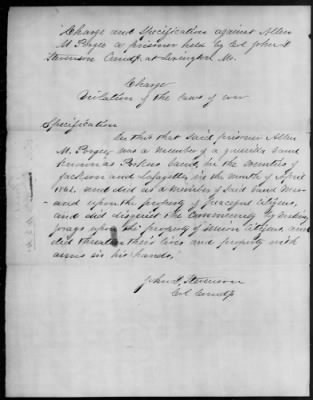 "Charge and Specification against Allen
M. Porgee a prisoner held by Col John D
Stevenson Comdg at Lexington Mo.
Charge
Violation of the laws of war
Specification
In this that said prisoner Allen
M. Porgee, was a member of a guerrilla band
known as Perkins band, in the counties of
Jackson and Lafayette, in the month of April
1862, and did as a member of said band
and upon the property of peaceful citizens,
and did disquiet the Community by making
forays upon the property of Union Citizens, and
did threaten their lives and property with
arms in his hands,"
John D. Stevenson
Col Comdg